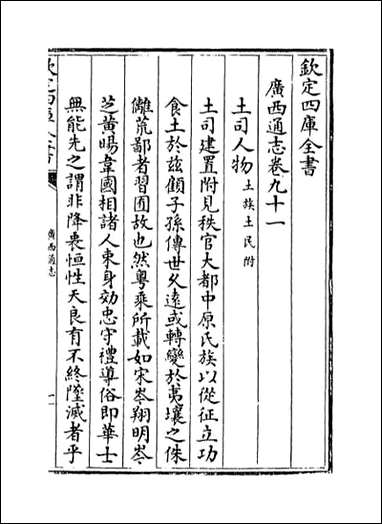 欽定四庫全書
廣西通志卷九十一
土司人物土族土民附
土司建置附見秩官大都中原氏族以從征立功
食土於兹顧子孫傳世久遠或轉變於夷壤之侏
儺荒鄙者習囿故也然粵乘所載如宋岑翔明岑
芝黄暘韋國相諸人束身効忠守禮導俗即華士
無能先之謂非降衷恒性天良有不終墮滅者乎
廣西通志
一